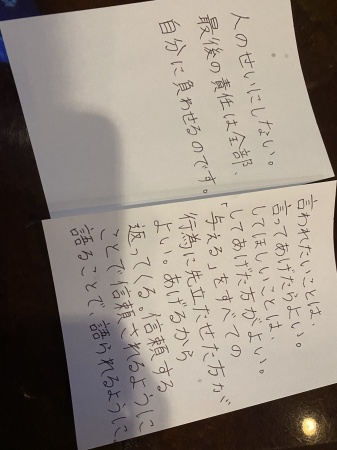 人のせいにしない。
最後の責任は全部、
自分に負わせるのです。
言われたいことは、
言ってあげたらよい。
してほしいことは、
してあげた方がよい。
「与える」をすべての
行為に先立たせた方が
よい。あげるから
返ってくる。信頼する
ことで信頼されるように
語ることで、語られるように、